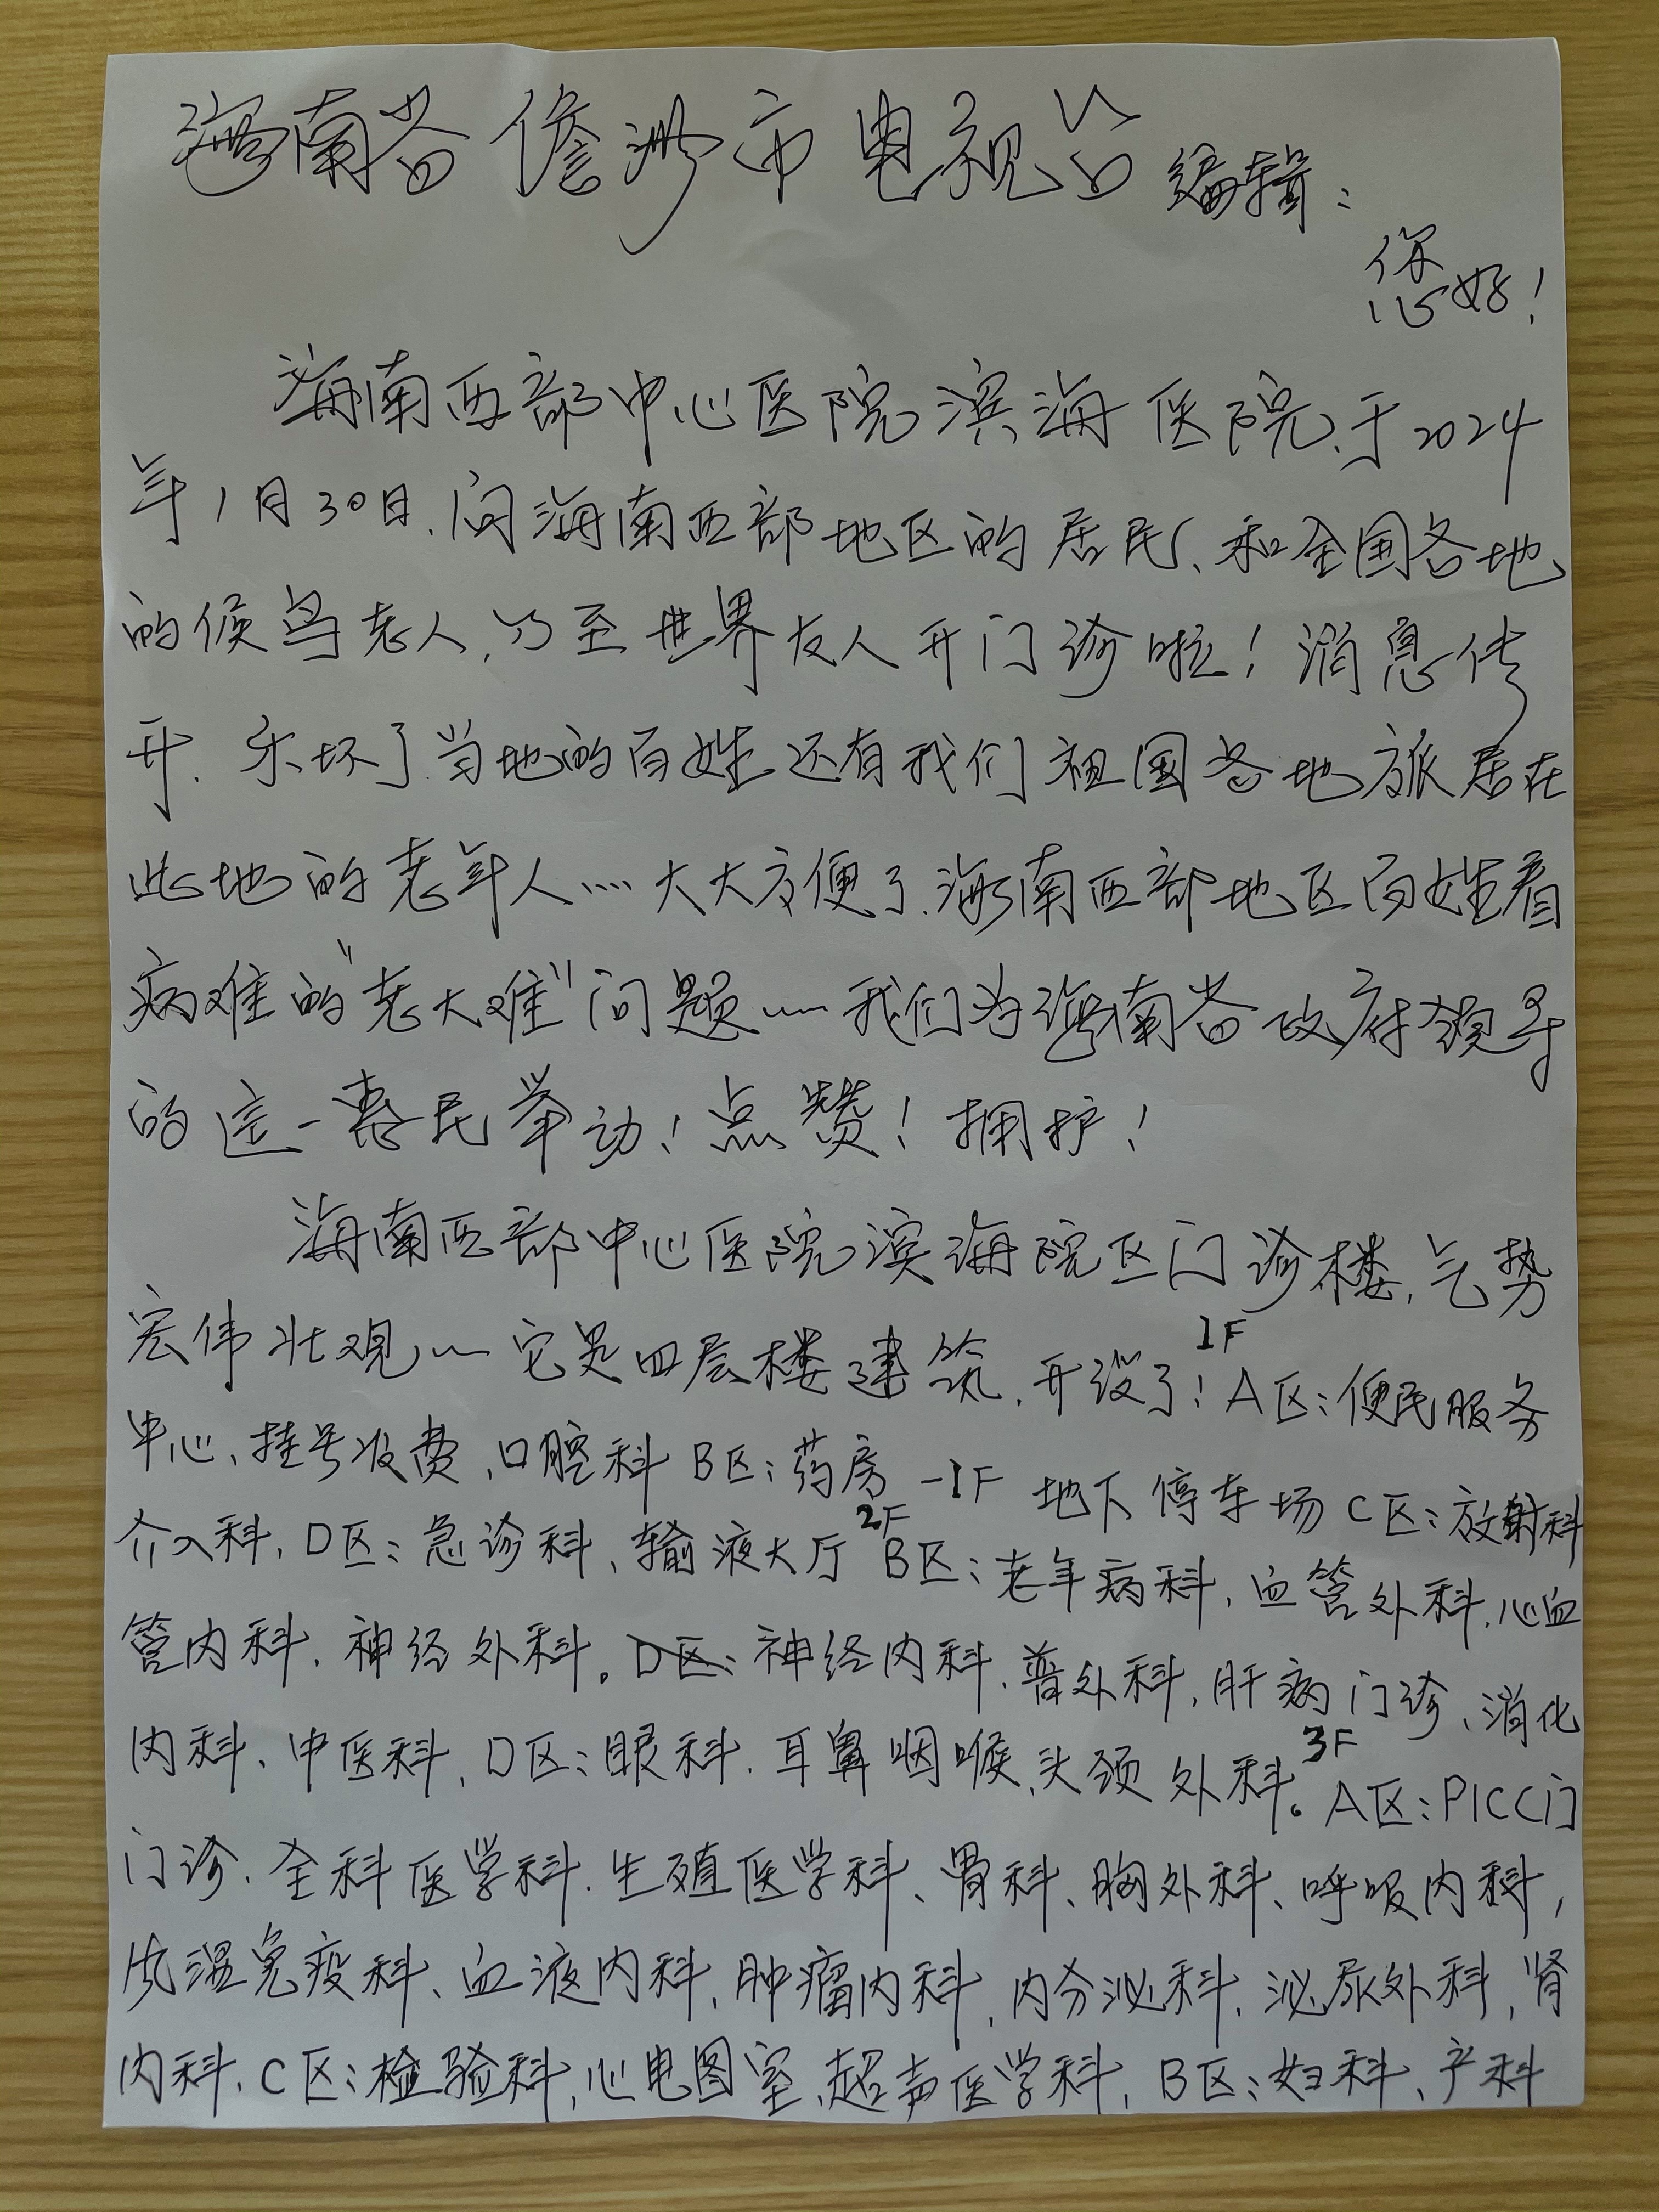 海南省儋洲市电视台编辑：
您好！
海南西部中心医院滨海医院、于2024
年1月30日、向海南西部地区的居民、和全国各地
的候鸟老人，乃至世界友人开门诊啦！消息传
开、乐坏了当地的百姓还有我们祖国各地旅居在
此地的老年人……大大方便了、海南西部地区百姓看
病难的"老大难"问题……我们为海南省政府领导
的这一惠民举动！点赞！拥护！
海南西部中心医院滨海院区门诊楼，气势
宏伟壮观……它是四层楼建筑，开设了！1F A区：便民服务
中心、挂号收费、口腔科 B区：药房 -1F 地下停车场 C区：放射科
介入科，D区：急诊科、输液大厅 2F B区：老年病科，血管外科，心血
管内科，神经外科。D区：神经内科，普外科，肝病门诊、消化
内科、中医科，D区：眼科、耳鼻咽喉、头颈外科。3F A区：PICC门
门诊、全科医学科、生殖医学科、骨科、胸外科、呼吸内科，
风湿免疫科、血液内科，肿瘤内科，内分泌科，泌尿外科，肾
内科，C区：检验科，心电图室、超声医学科，B区：妇科、产科